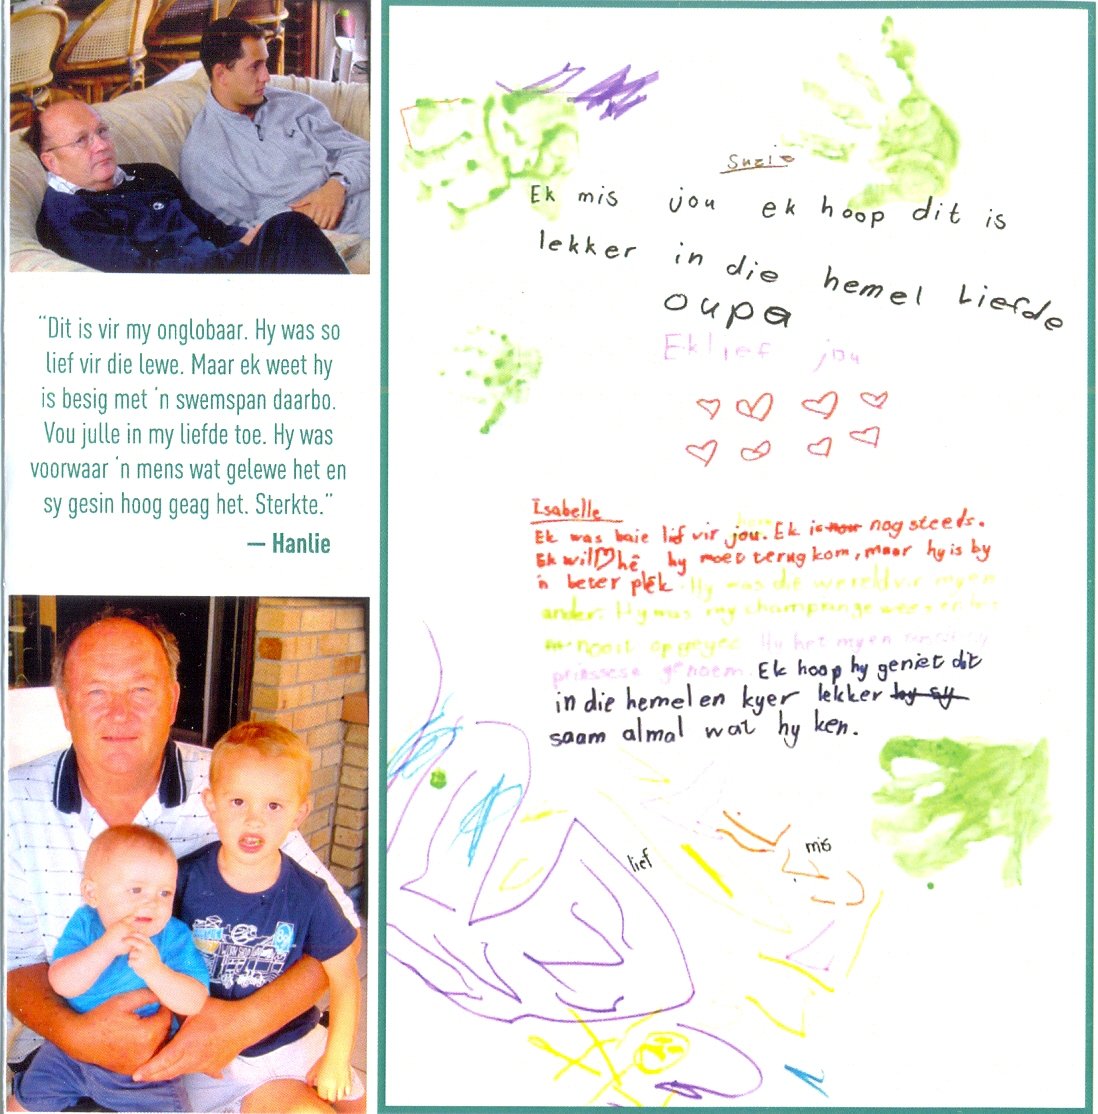 "Dit is vir my onglobaar. Hy was so
lief vir die lewe. Maar ek weet hy
is besig met 'n swemspan daarbo.
Vou julle in my liefde toe. Hy was
voorwaar 'n mens wat gelewe het en
sy gesin hoog geag het. Sterkte."
— Hanlie
Suzie
Ek mis jou ek hoop dit is
lekker in die hemel Liefde
oupa
Ek lief jou
Isabelle
Ek was baie lief vir jou. Ek is nog steeds.
Ek wil hê hy moet terug kom, maar hy is by
'n beter plek. Hy was die wereld vir my en
ander. Hy was my champ
nooit opgegee. Hy het my en
prinssese genoem. Ek hoop hy geniet dit
in die hemel en kyer lekker hy sy
saam almal wat hy ken.
lief
mis